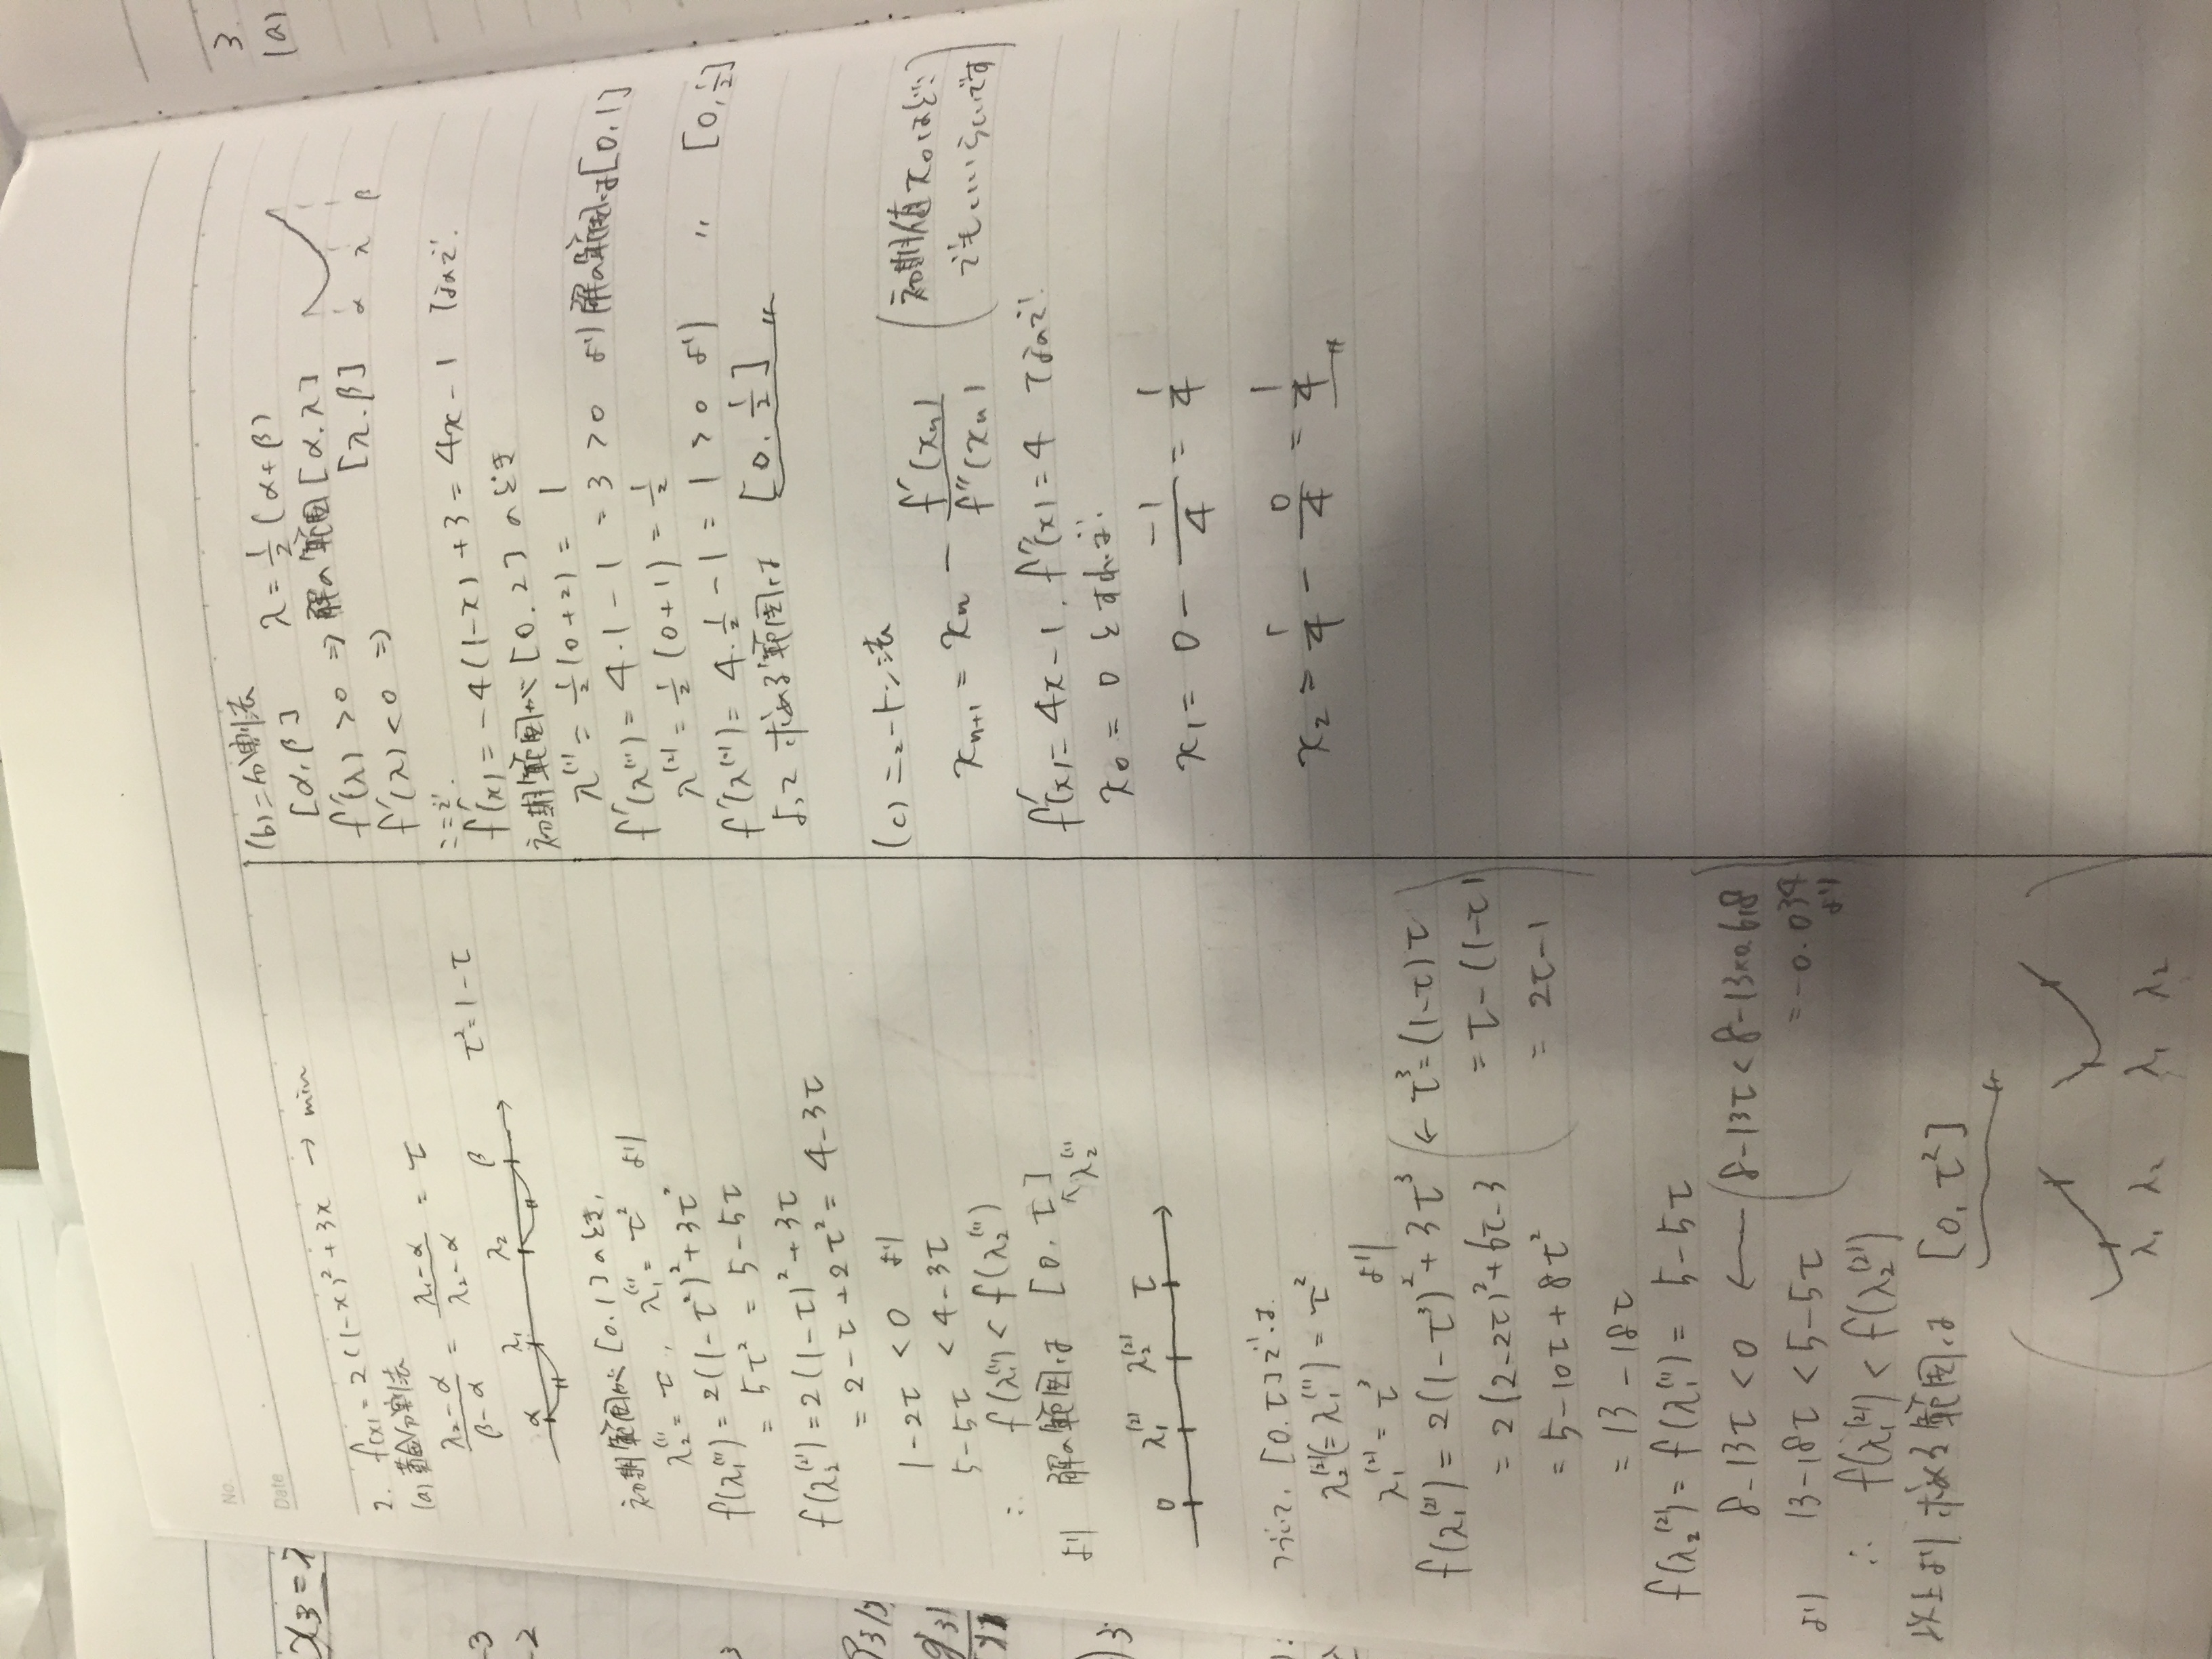 No.
Date
2. f(x) = 2(1-x)² + 3x → min
(a) 黄金分割法
(λ₂-α)/(β-α) = (λ₁-α)/(λ₂-α) = τ
τ² = 1-τ
α λ₁ λ₂ β
初期範囲が [0.1] のとき,
λ₂⁽¹⁾ = τ, λ₁⁽¹⁾ = τ² より
f(λ₁⁽¹⁾) = 2(1-τ²)² + 3τ²
= 5τ² = 5-5τ
f(λ₂⁽²⁾) = 2(1-τ)² + 3τ
= 2-τ+2τ² = 4-3τ
1-2τ < 0 より
5-5τ < 4-3τ
∴ f(λ₁⁽¹⁾) < f(λ₂⁽¹⁾)
より 解の範囲は [0, τ]
↖ λ₂⁽¹⁾
0 λ₁⁽²⁾ λ₂⁽²⁾ τ
つづいて, [0.τ] では
λ₂⁽²⁾(=λ₁⁽¹⁾) = τ²
λ₁⁽²⁾ = τ³ より
f(λ₁⁽²⁾) = 2(1-τ³)² + 3τ³ ( ← τ³ = (1-τ)τ
= 2(2-2τ)² + 6τ-3 = τ-(1-τ)
= 5-10τ+8τ² = 2τ-1 )
= 13-18τ
f(λ₂⁽²⁾) = f(λ₁⁽¹⁾) = 5-5τ
8-13τ < 0 ← ( 8-13τ < 8-13×0.618
より 13-18τ < 5-5τ = -0.034
より )
∴ f(λ₁⁽²⁾) < f(λ₂⁽²⁾)
以上より 求める範囲は [0, τ²]
λ₁ λ₂ λ₁ λ₂
(b) 二分割法
[α, β] λ = ½(α+β)
f'(λ) > 0 ⇒ 解の範囲 [α.λ]
f'(λ) < 0 ⇒ [λ.β]
α λ β
ここで,
f'(x) = -4(1-x)+3 = 4x-1 なので,
初期範囲が [0.2] のとき
λ⁽¹⁾ = ½(0+2) = 1
f'(λ⁽¹⁾) = 4·1-1 = 3 > 0 より 解の範囲は [0,1]
λ⁽²⁾ = ½(0+1) = ½
f'(λ⁽²⁾) = 4·½-1 = 1 > 0 より 〃 [0,½]
よって 求める範囲は [0.½]
(c) ニュートン法
xₙ₊₁ = xₙ - f'(xₙ)/f''(xₙ) (初期値 x₀はどこ
でもいいらしいです)
f'(x) = 4x-1, f''(x) = 4 なので
x₀ = 0 とすれば
x₁ = 0 - (-1)/4 = 1/4
x₂ = 1/4 - 0/4 = 1/4
x₃ = λ
-3
-2
3
3.
(a)